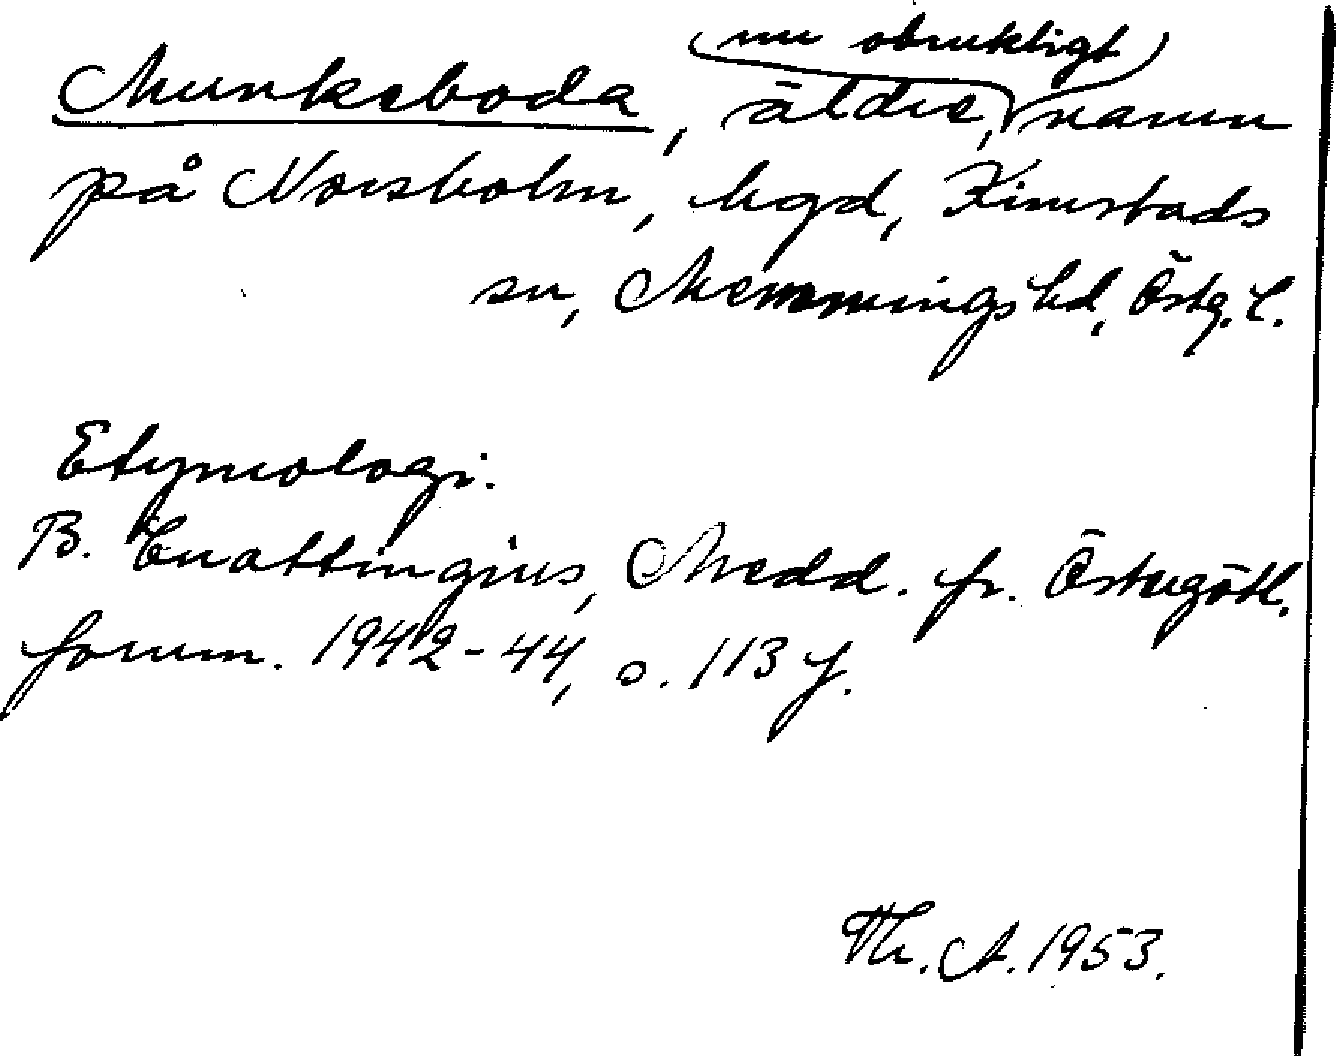 Munkeboda, äldre, nu obrukligt namn
på Norsholm, hgd, Kimstads
sn, Memmings hd, Östg. l.
Etymologi.
B. Cnattingius, Medd. fr. Östergötl.
fornm. 1942-44, s. 113 f.
Th. A. 1953.